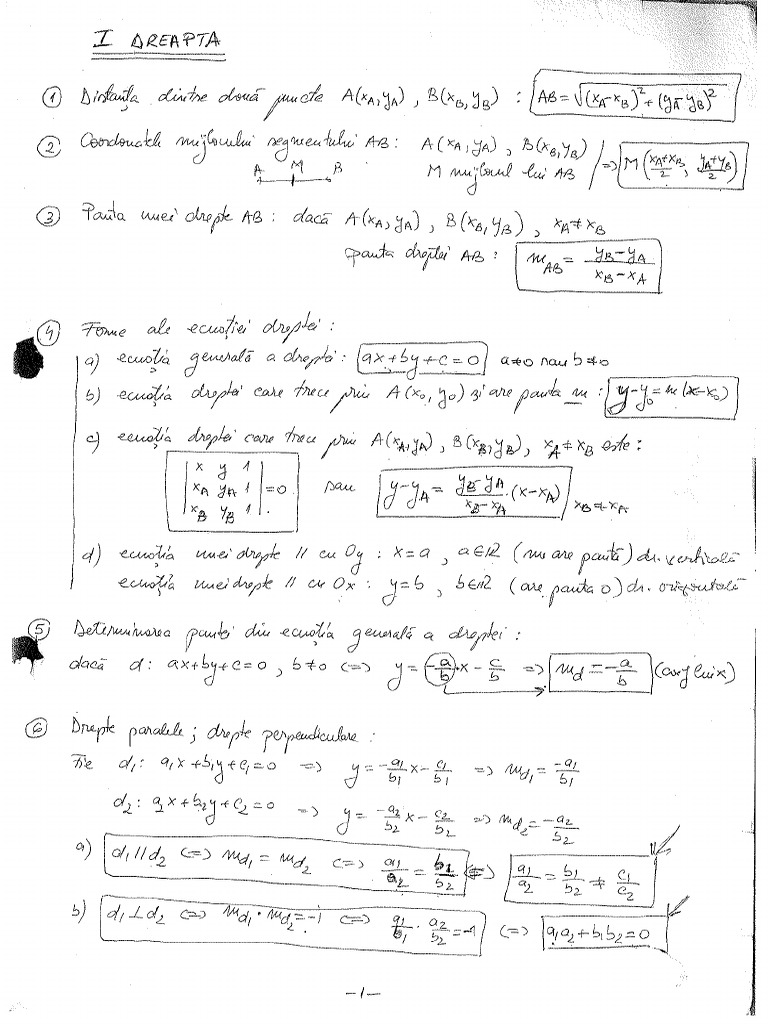 I DREAPTA
① Distanța dintre două puncte A(x_A, y_A), B(x_B, y_B) : AB = √((x_A-x_B)² + (y_A-y_B)²)
② Coordonatele mijlocului segmentului AB: A(x_A, y_A), B(x_B, y_B)
A M B M mijlocul lui AB => M((x_A+x_B)/2, (y_A+y_B)/2)
③ Panta unei drepte AB: dacă A(x_A, y_A), B(x_B, y_B), x_A ≠ x_B
panta dreptei AB: m_AB = (y_B-y_A)/(x_B-x_A)
④ Forme ale ecuației dreptei:
a) ecuația generală a dreptei: ax+by+c=0 a≠0 sau b≠0
b) ecuația dreptei care trece prin A(x₀, y₀) și are panta m : y-y₀=m(x-x₀)
c) ecuația dreptei care trece prin A(x_A, y_A), B(x_B, y_B), x_A ≠ x_B este:
|x y 1|
|x_A y_A 1| =0 sau y-y_A = (y_B-y_A)/(x_B-x_A)·(x-x_A) x_B ≠ x_A
|x_B y_B 1|.
d) ecuația unei drepte // cu Oy : x=a, a∈ℝ (nu are pantă) dr. verticală
ecuația unei drepte // cu Ox : y=b, b∈ℝ (are panta 0) dr. orizontală
⑤ Determinarea pantei din ecuația generală a dreptei :
dacă d: ax+by+c=0, b≠0 <=> y = -a/b·x - c/b => m_d = -a/b (
⑥ Drepte paralele; drepte perpendiculare :
Fie d₁: a₁x+b₁y+c₁=0 => y = -a₁/b₁x - c₁/b₁ => m_d₁ = -a₁/b₁
d₂: a₂x+b₂y+c₂=0 => y = -a₂/b₂x - c₂/b₂ => m_d₂ = -a₂/b₂
a) d₁//d₂ <=> m_d₁ = m_d₂ <=> a₁/a₂ = b₁/b₂ <=> a₁/a₂ = b₁/b₂ ≠ c₁/c₂
b) d₁⊥d₂ <=> m_d₁·m_d₂=-1 <=> a₁/b₁·a₂/b₂=-1 <=> a₁a₂+b₁b₂=0
-1-